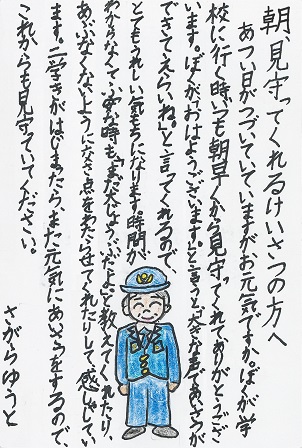 朝、見守ってくれるけいさつの方へ
あつい日がつづいていますがお元気ですか。ぼくが学
校に行く時、いつも朝早くから見守ってくれてありがとうござ
います。ぼくが「おはようございます。」と言うと、「大きな声であいさつが
できてえらいね。」と言ってくれるので、
とてもうれしい気もちになります。時間が
わからなくて不安な時も、「まだ大じょうぶだよ」と教えてくれたり、
あぶなくないように交さ点をわたらせてくれたりして、感しゃしてい
ます。二学きがはじまったら、また元気にあいさつをするので、
これからも見守っていてください。
さがらゆうと